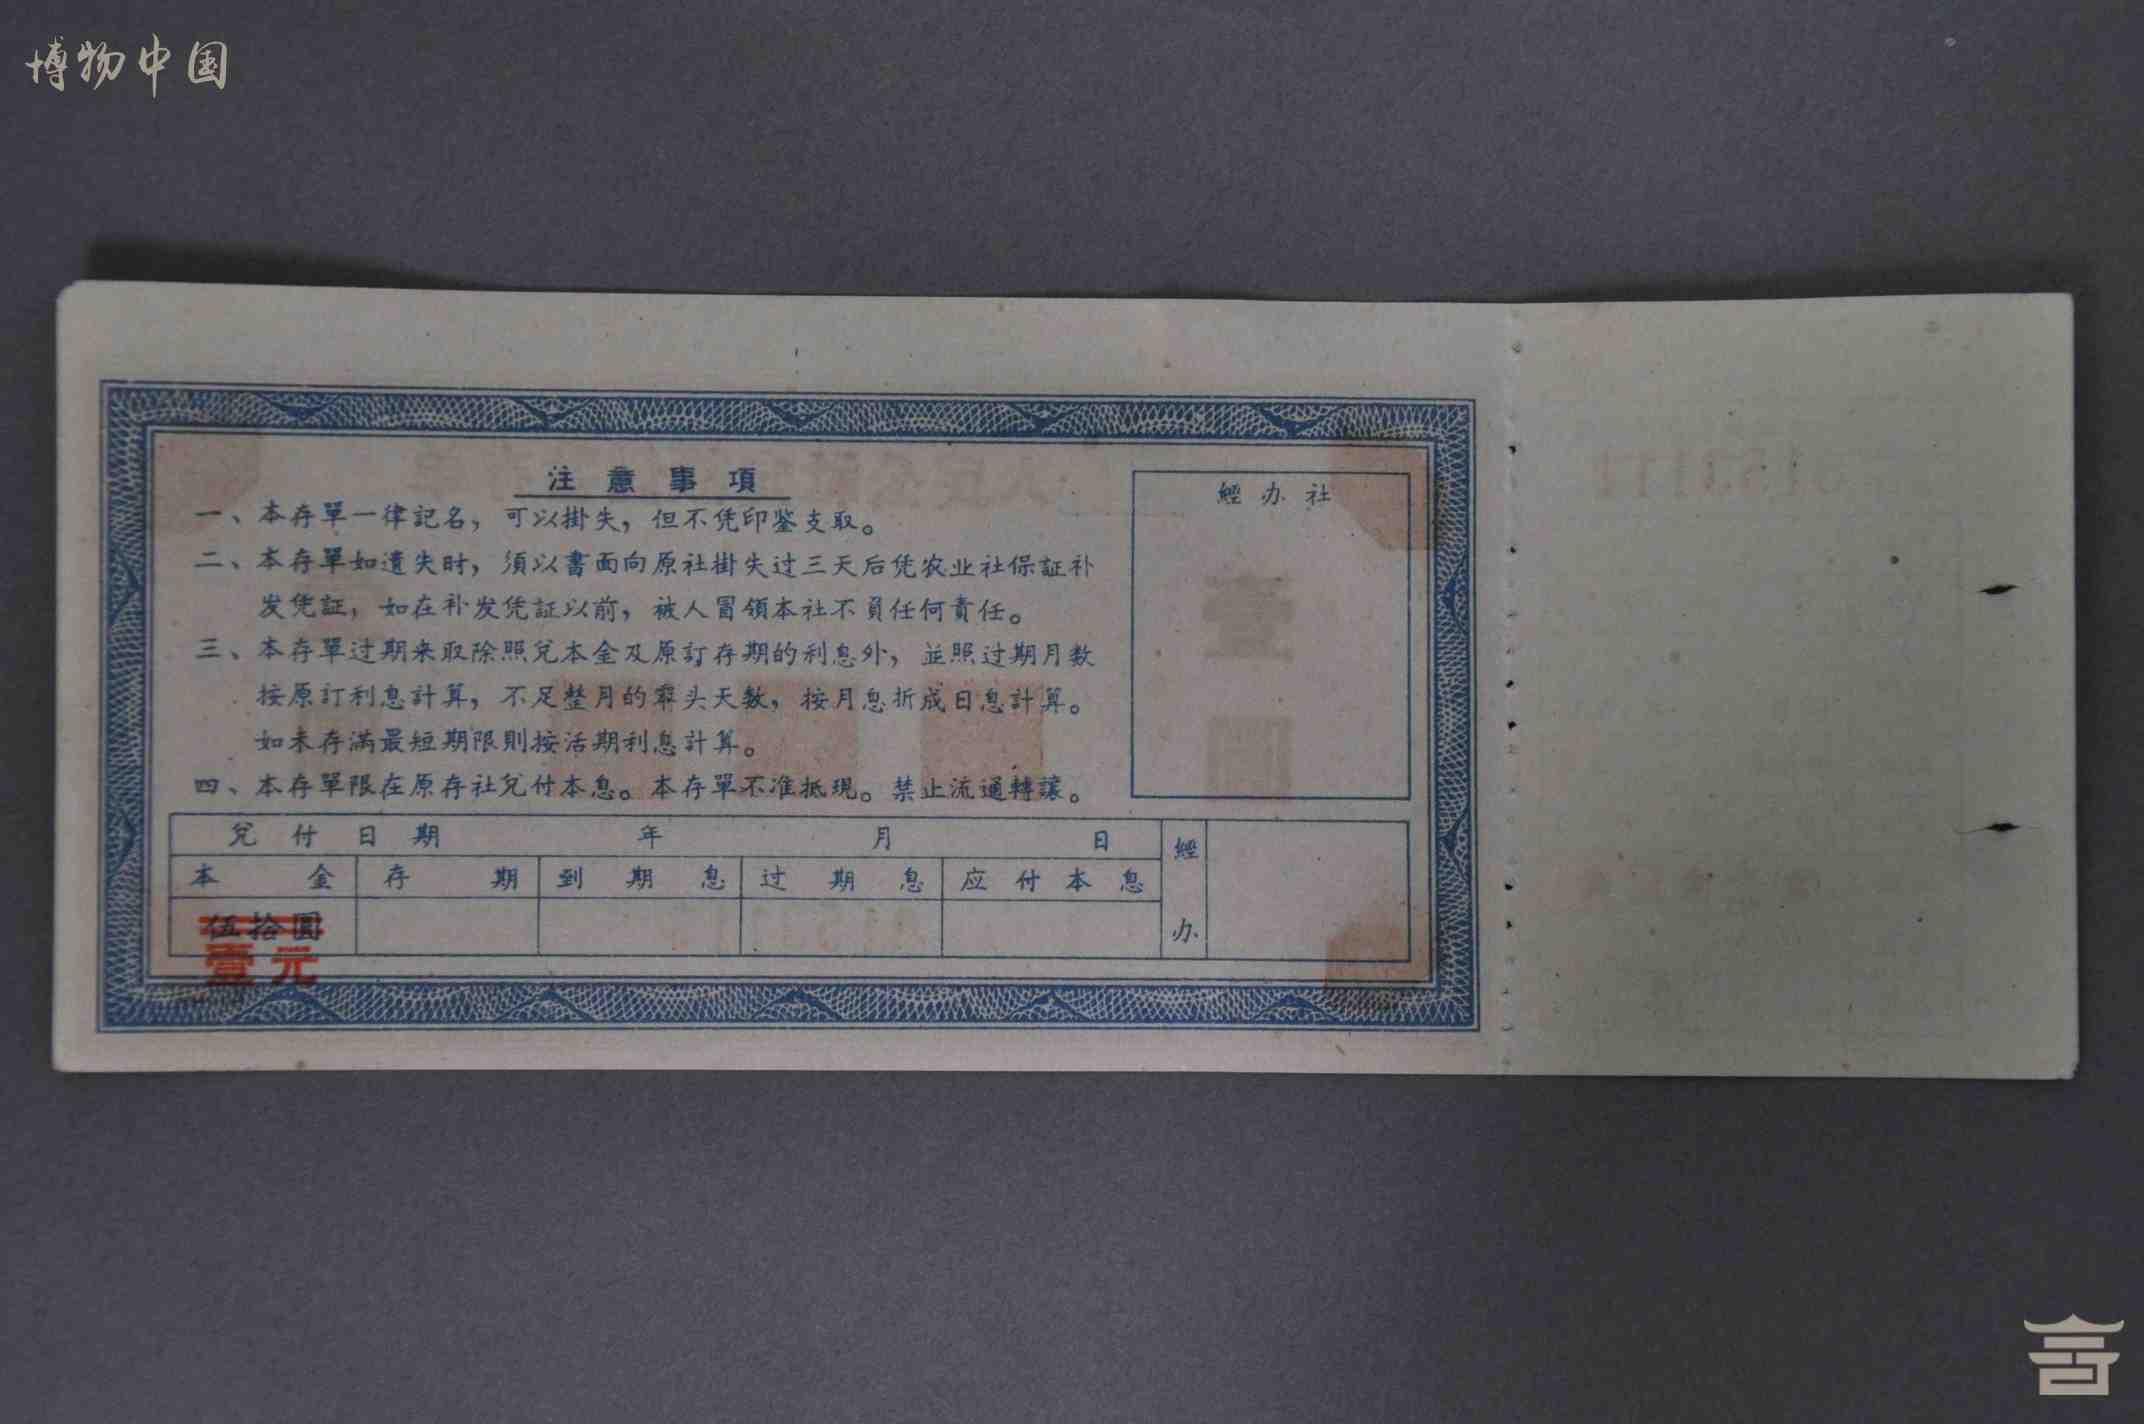 博物中国
注意事項
一、本存單一律記名，可以掛失，但不凭印鉴支取。
二、本存單如遺失时，須以書面向原社掛失过三天后凭农业社保証补
发凭証，如在补发凭証以前，被人冒領本社不負任何責任。
三、本存單过期来取除照兌本金及原訂存期的利息外，並照过期月数
按原訂利息計算，不足整月的零头天数，按月息折成日息計算。
如未存滿最短期限則按活期利息計算。
四、本存單限在原存社兌付本息。本存單不准抵現。禁止流通轉讓。
經办社
兌付日期 年 月 日
經办
本金 存期 到期息 过期息 应付本息
伍拾圓
壹元